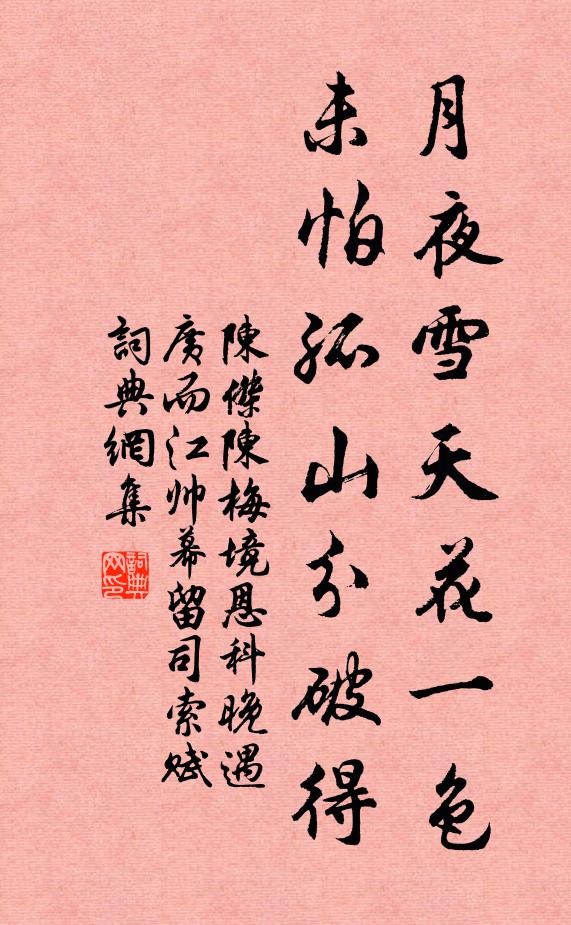 月夜雪天花一色
未怕孤山分破得
陳傑陳梅境恩科晚遇
廣而江帅幕留司索赋
詞典網集
詞典网印